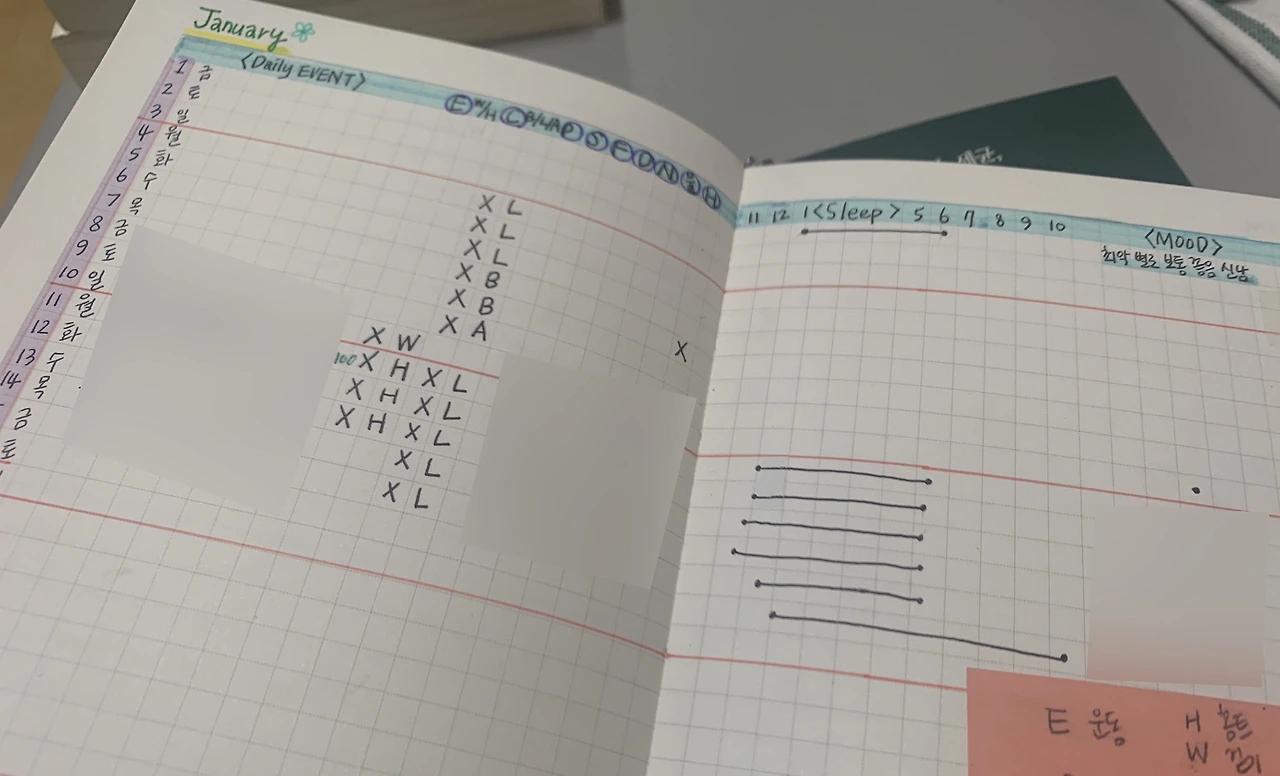 January
<Daily EVENT>
1 금
2 토
3 일
4 월
5 화
6 수
7 목
8 금
9 토
10 일
11 월
12 화
13 수
14 목
금
토
E W/H C B/L/A P S E D N H
X L
X L
X L
X B
X B
X A
X W
100 X H X L
X H X L
X H X L
X L
X L
X
11 12 1 <Sleep> 5 6 7 8 9 10
<MOOD>
최악 별로 보통 좋음 신남
E 운동 H 홈트
W